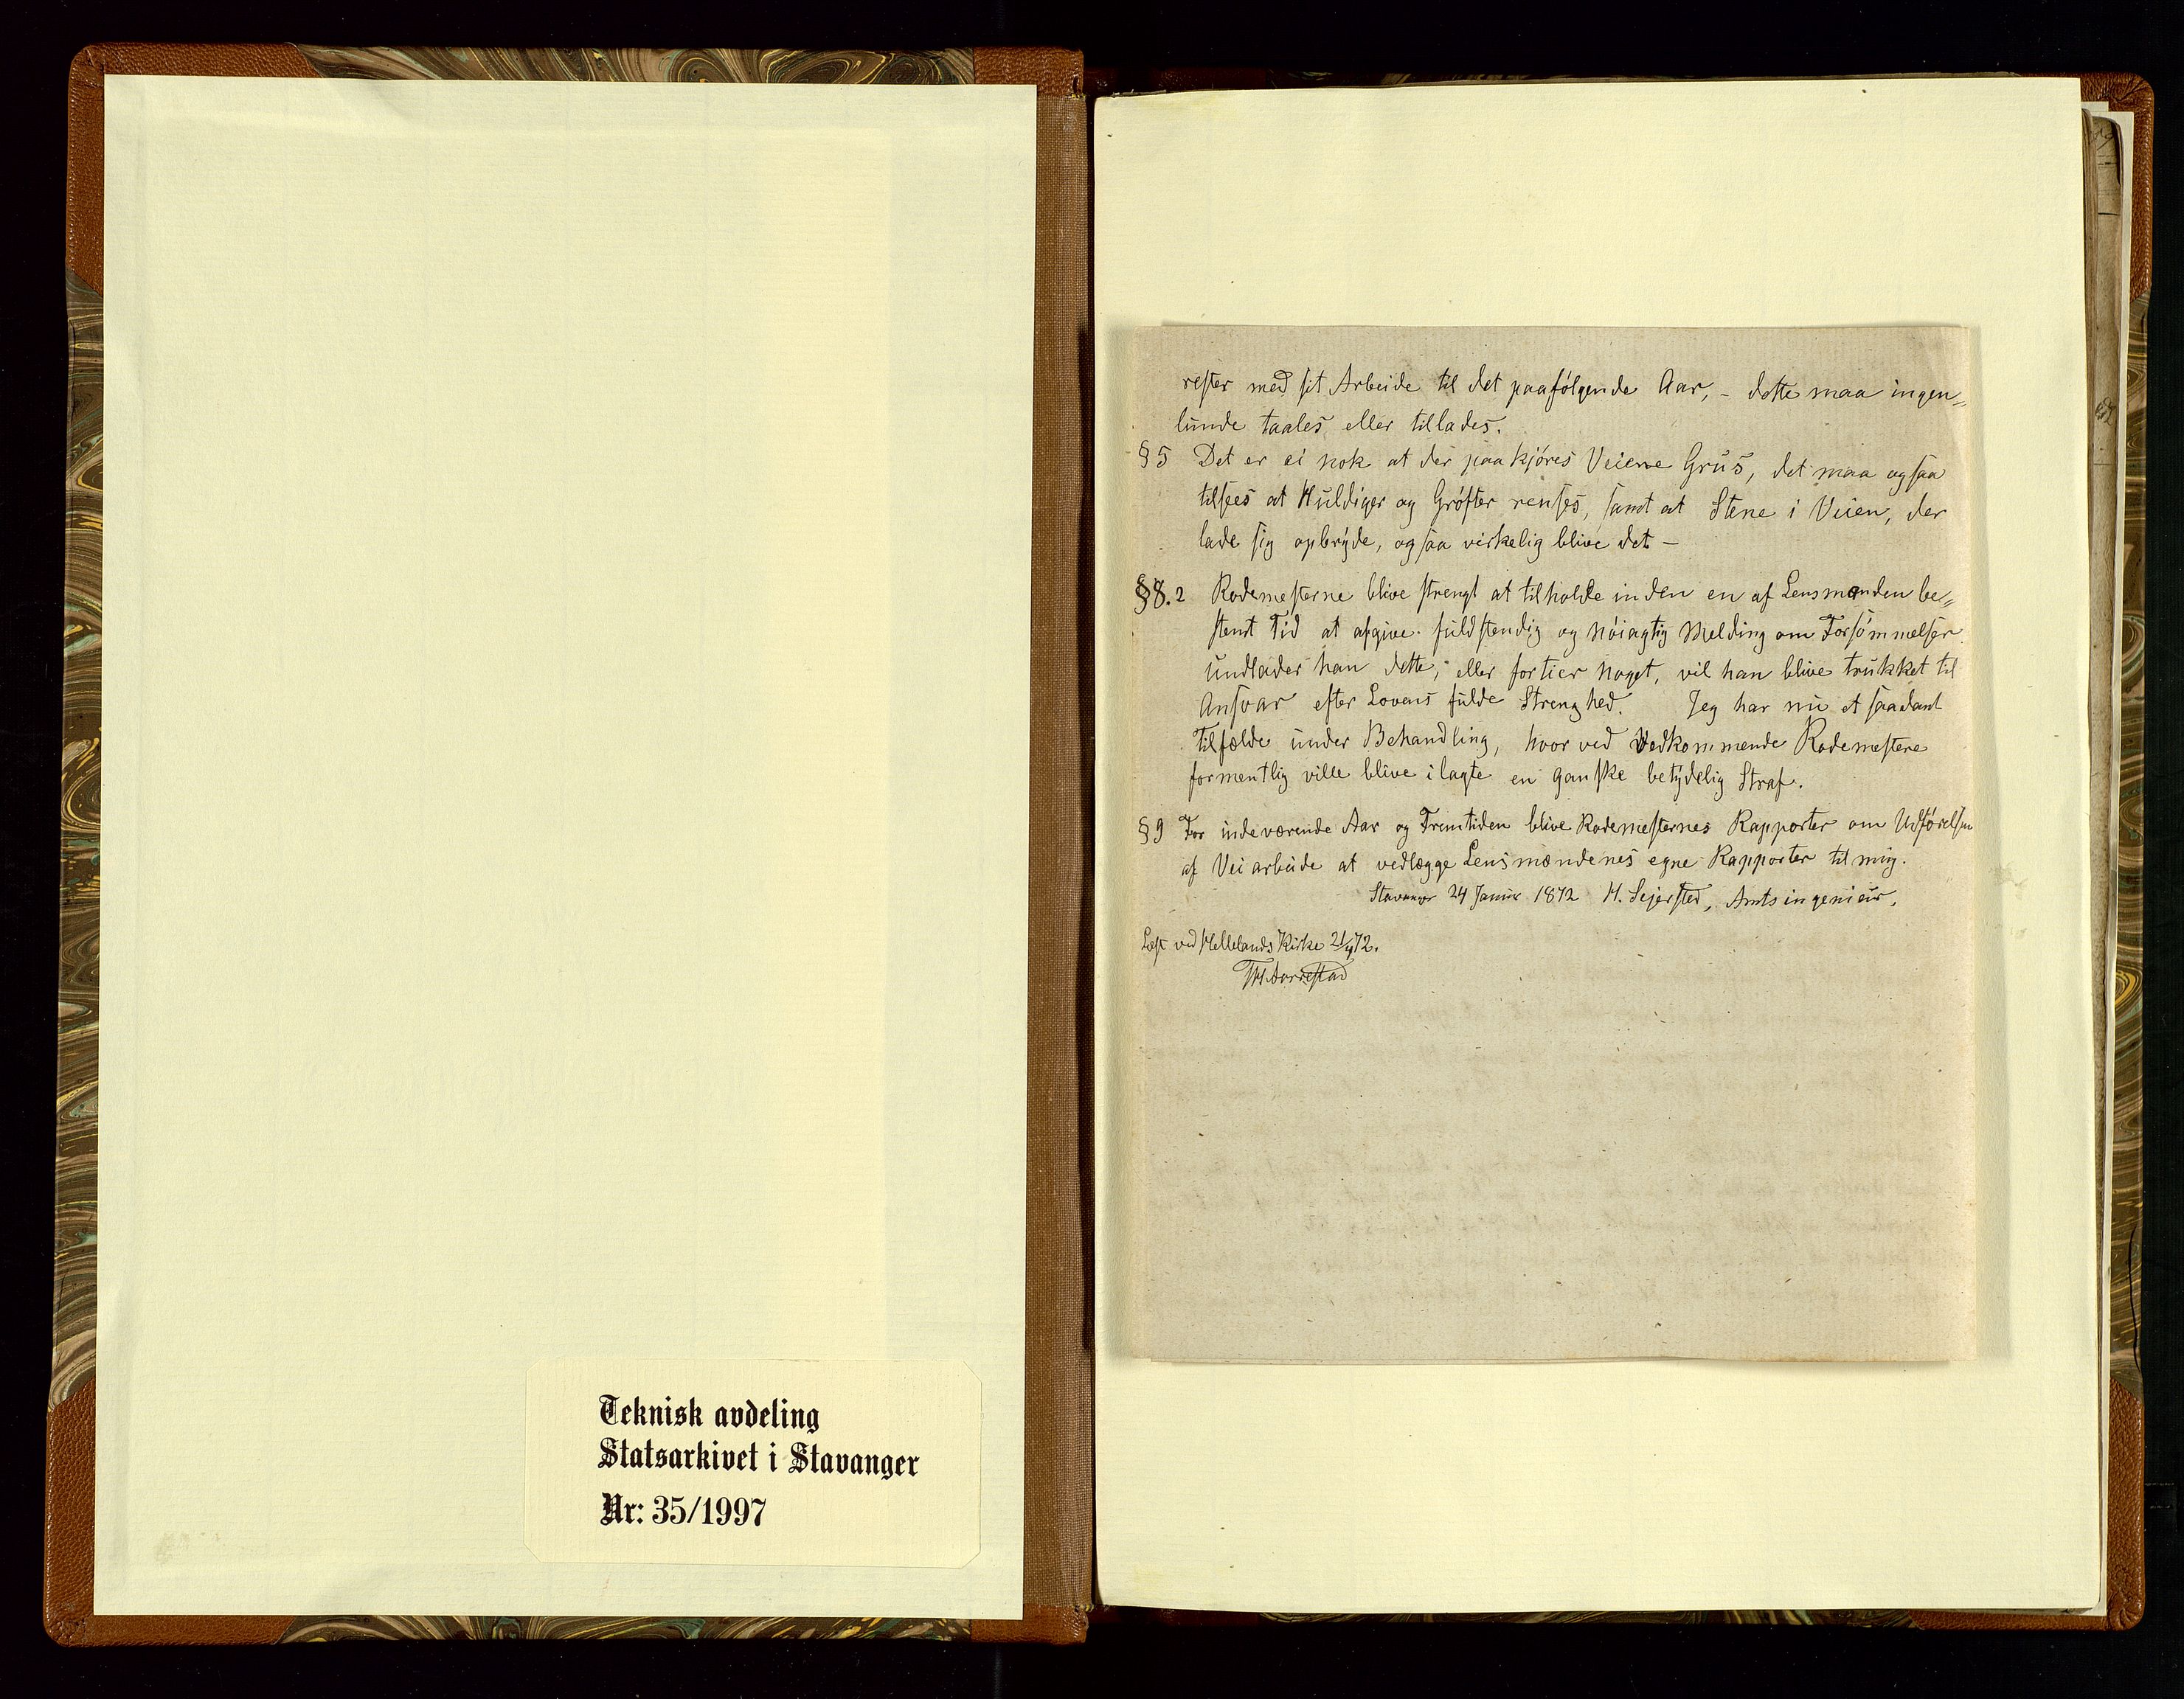 Teknisk avdeling
Statsarkivet i Stavanger
Nr: 35/1997
rester med sit Arbeide til det paafölgende Aar, - dette maa ingen„
lunde taales eller tillades.
§5 Det er ei nok at der paakjöres Veiene Grus, det maa ogsaa
tilsees at Huldiger og Gröfter renses, samt at Stene i Veien, der
lade sig opbryde, ogsaa virkelig blive det –
§8.2 Rodemesterne blive strengt at tilholde inden en af Lensmanden be„
stemt Tid at afgive fuldstendig og nöiagtig Melding om Forsömmelser
undlader han dette, eller fortier noget, vil han blive trukket til
Ansvar efter Lovens fulde Strenghed. Jeg har nu et saadant
Tilfælde under Behandling, hvorved Vedkommende Rodemestere
formentlig ville blive ilagte en ganske betydelig Straf.
§9 For indeværende Aar og Fremtiden blive Rodemesternes Rapporter om Udförelsen
af Veiarbeide at vedlægge Lensmændenes egne Rapporter til mig.
Stavanger 24 Januar 1872 H. Sejersted, Amtsingeniör,
Læst ved Hellelands Kirke 21/4 72.
TH Aarrestad